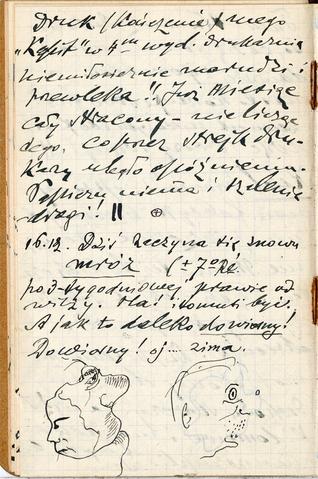 Druk (kończenie) mego
"Kajet" w 4m wyd. drukarnia
niemiłosiernie marudzi i
przewleka!! Już miesiąc
cały stracony - nie licząc
tego, co przez strejk dru-
karzy uległo opóźnieniu.
Papieru niema i szalenie
drogi! ||
16.12. Dziś zaczyna się znowu
mróz (± 7° Ré
po 3-tygodniowej prawie od-
wilży. Ha! i to musi być.
A jak to daleko do wiosny!
Do wiosny! oj... zima.